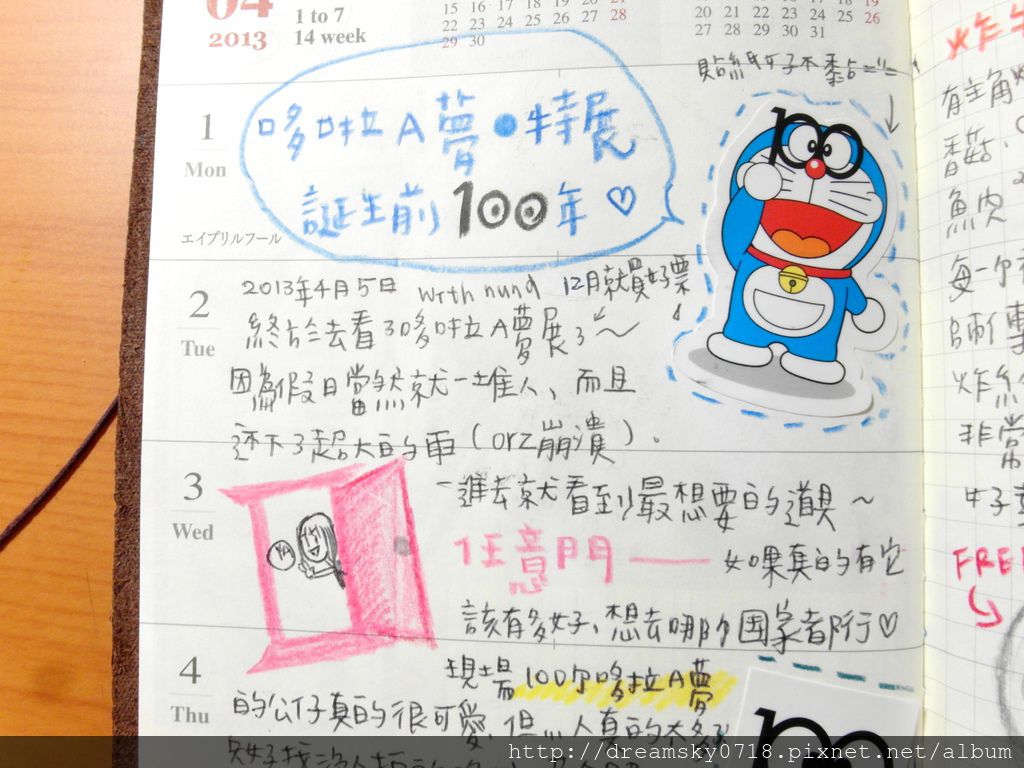 04
2013
1 to 7
14 week
15 16 17 18 19 20 21
22 23 24 25 26 27 28
29 30
20 21 22 23 24 25 26
27 28 29 30 31
貼紙好不黏
1
Mon
エイプリルフール
哆啦A夢•特展
誕生前100年♡
2
Tue
2013年4月5日 with nund 12月就買好票
終於去看了哆啦A夢展了~
因為假日當然就一堆人、而且
还下了超大的雨(orz崩潰).
3
Wed
一進去就看到最想要的道具~
任意門——如果真的有它
該有多好、想去哪个国家都行♡
YA
4
Thu
現場100个哆拉A夢
的公仔真的很可愛、但人真的太多
炸牛
有主角
香菇、
魚肉
每一个
師傅
炸
非常
FREE
http://dreamsky0718.pixnet.net/album